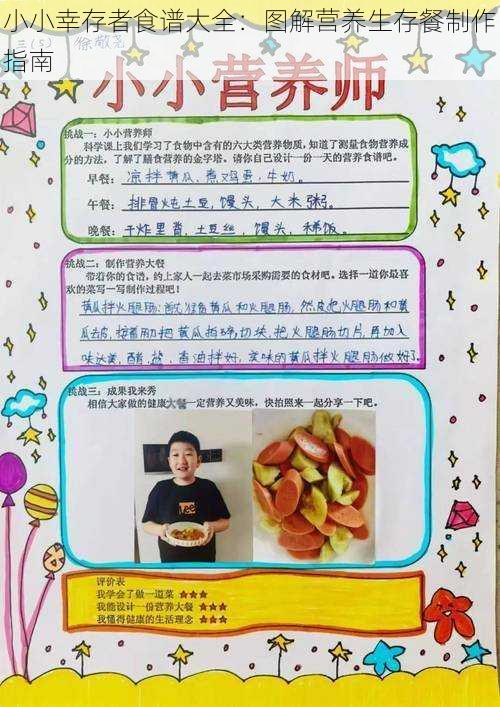 小小幸存者食谱大全：图解营养生存餐制作
指南
三（5） 徐敬尧
小小营养师
挑战一：小小营养师
科学课上我们学习了食物中含有的六大类营养物质，知道了测量食物营养成
分的方法，了解了膳食营养的金字塔。请你自己设计一份一天的营养食谱吧。
早餐：凉拌黄瓜、煮鸡蛋、牛奶。
午餐：排骨炖土豆，馒头，大米粥。
晚餐：干炸里脊，土豆丝，馒头，稀饭。
挑战二：制作营养大餐
带着你的食谱，约上家人一起去菜市场采购需要的食材吧。选择一道你最喜
欢的菜写一写制作过程吧！
黄瓜拌火腿肠：黄瓜和火腿肠，然后把火腿肠和黄
瓜去皮，接着把黄瓜拍碎切块，把火腿肠切片，再加入
味达美，醋，盐，香油拌好，美味的黄瓜拌火腿肠做好了。
挑战三：成果我来秀
相信大家做的健康大餐一定营养又美味，快拍照来一起分享一下吧。
Lee
评价表
我学会了做一道菜 ★★★
我能设计一份营养大餐 ★★★
我懂得健康的生活理念 ★★★